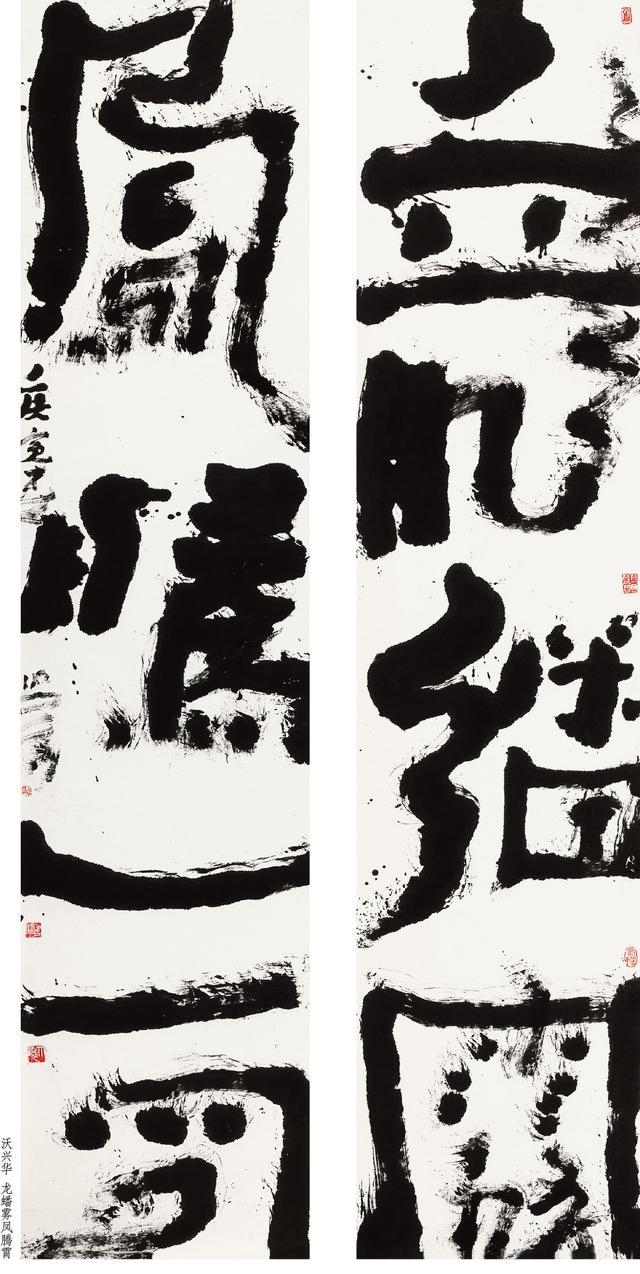 龍蟠霧
鳳騰霄
沃兴华 龙蟠雾凤腾霄